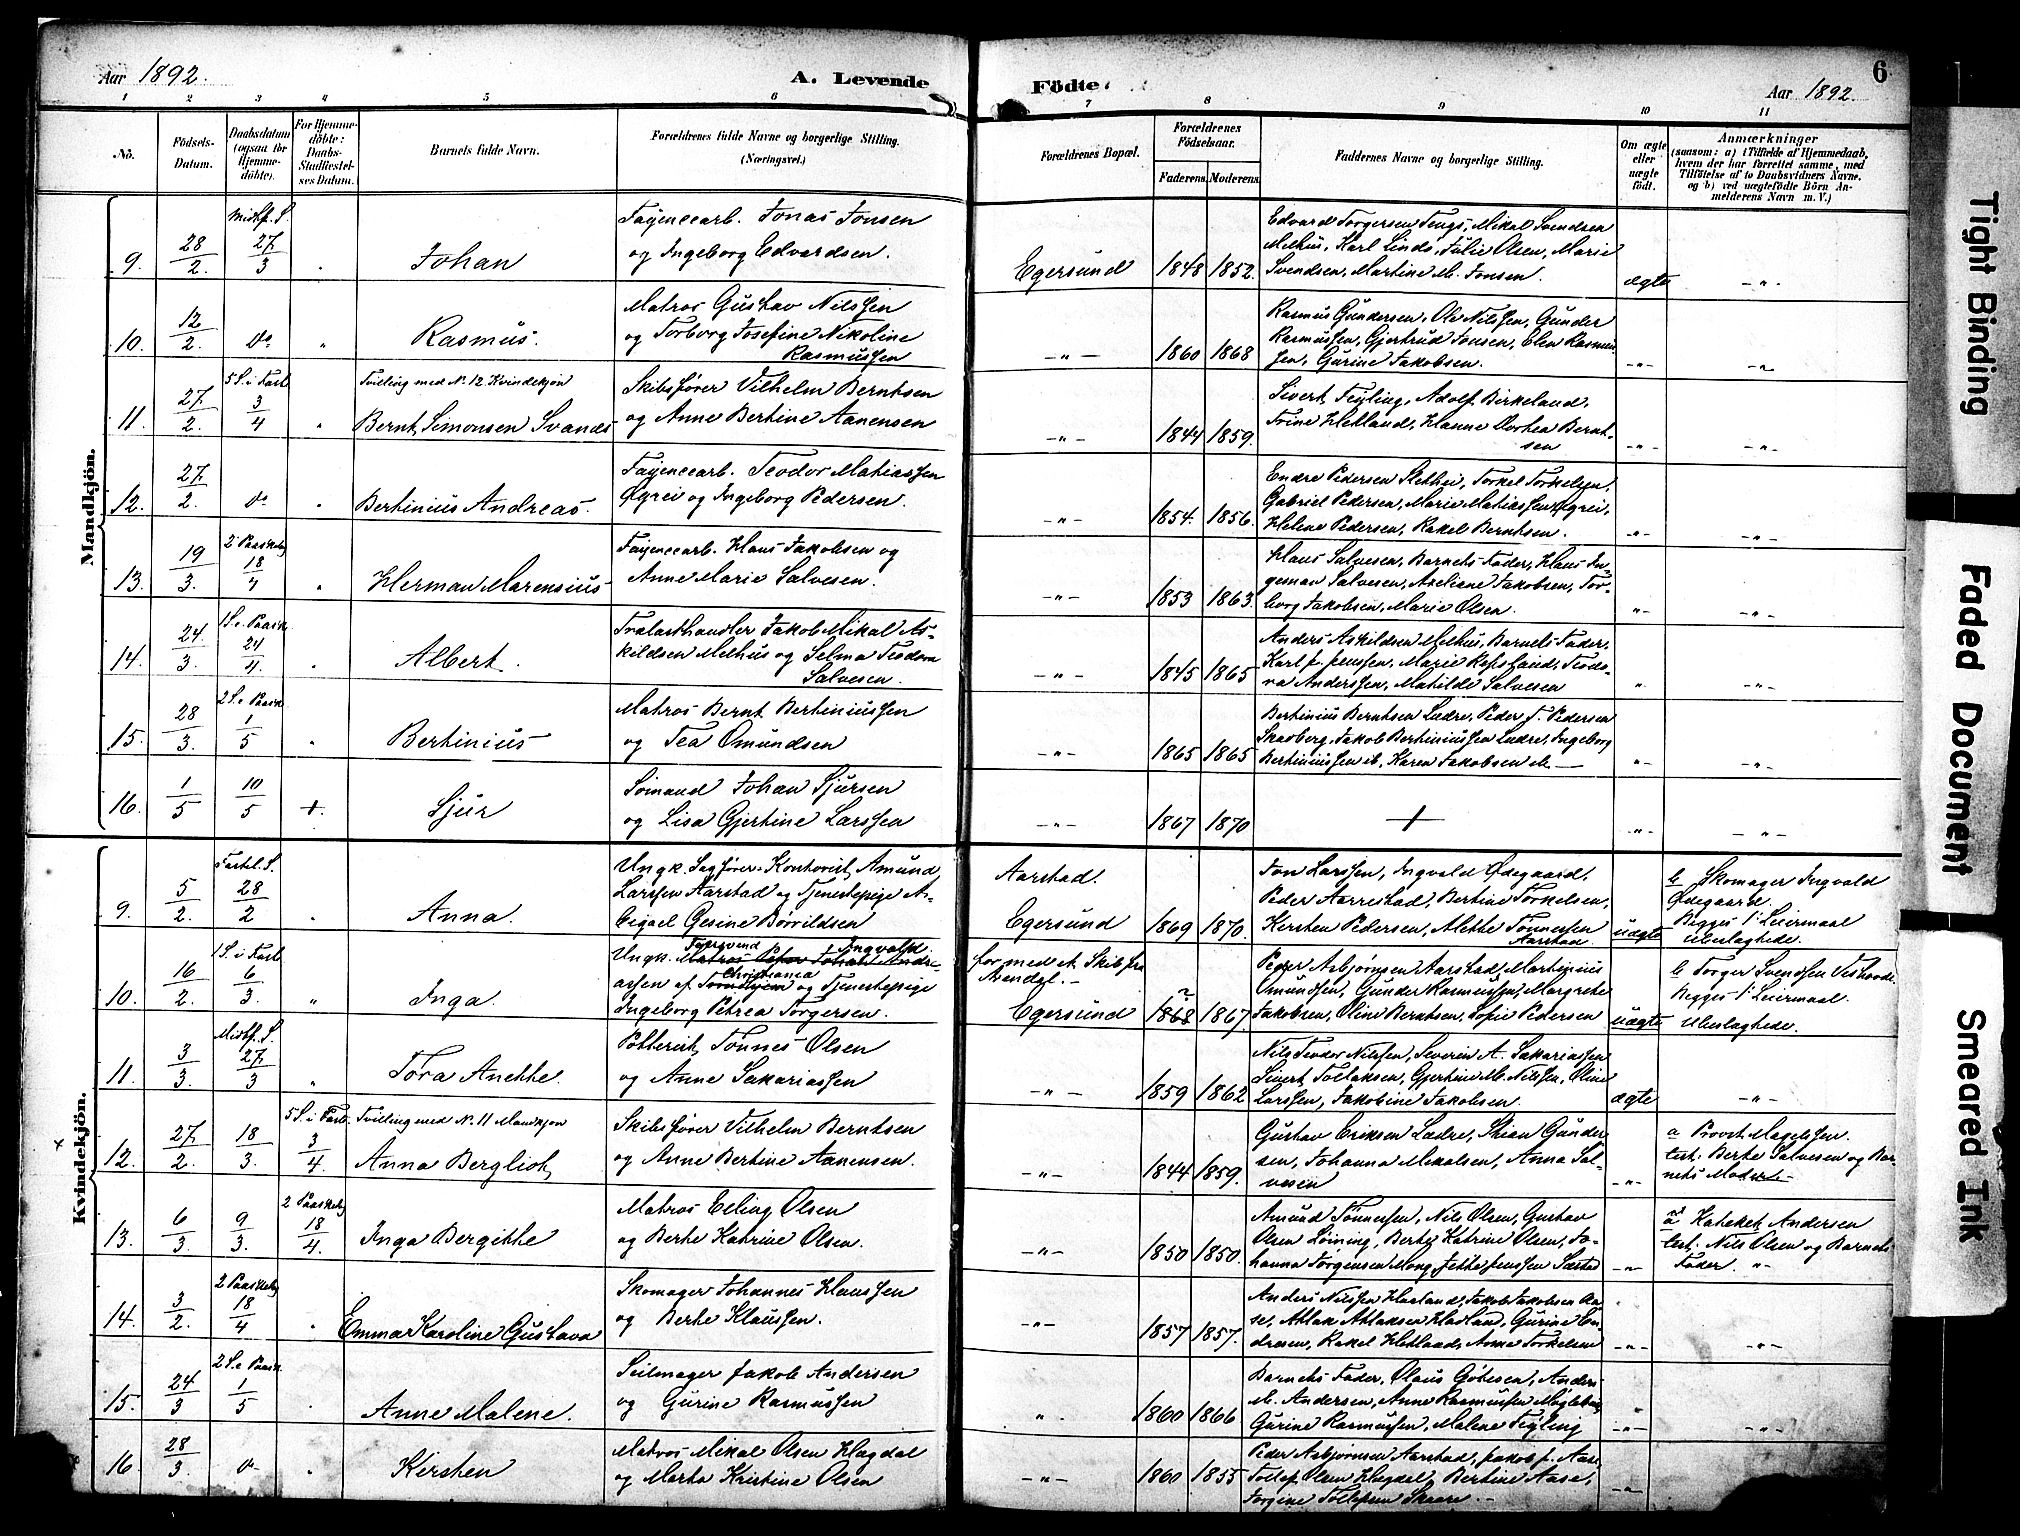 Aar 1892.
A. Levende
Födte.
Aar 1892.
6
1 2 3 4 5 6 7 8 9 10 11
No.
Födsels-
Datum.
Daabsdatum
(ogsaa for
Hjemme-
döbte).
For Hjemme-
döbte:
Daabs-
Stadfæstel-
ses Datum.
Barnets fulde Navn.
Forældrenes fulde Navne og borgerlige Stilling.
(Næringsvei.)
Forældrenes Bopæl.
Forældrenes
Födselsaar.
Faderens. Moderens.
Faddernes Navne og borgerlige Stilling.
Om ægte
eller
uægte
födt.
Anmærkninger
(saasom: a) i Tilfælde af Hjemmedaab,
hvem der har forrettet samme, med
Tilföielse af to Daabsvidners Navne,
og b) ved uægtefödte Börn An-
melderens Navn m. V.)
Mandkjön.
9. 28/2 Midtf. S. 27/3 " Johan
Fayencearb. Jonas Jonsen
og Ingeborg Edvardsen.
Egersund 1848 1852.
Edvard Torgersen Tengs, Mikal Svendsen
Melhus, Karl Linds, Julie Olsen, Marie
Svendsen, Martine M. Jonsen.
ægte -"-
10. 12/2 do " Rasmus.
Matros Gustav Nilssen
og Torborg Josefine Nikoline
Rasmussen
-"- 1860 1868
Rasmus Gundersen, Ole Nilssen, Gunder
Rasmussen, Gjertrud Jonsen, Elen Rasmus-
sen, Gurine Jakobsen.
-"- -"-
11. 27/2 5 S. i Fast. 3/4 "
Tvilling med No. 12 Kvindekjön
Bernt Simonsen Svands
Skibsfører Vilhelm Berntsen
og Anne Bertine Aanensen
-"- 1844 1859.
Sivert Feyling, Adolf Birkeland,
Trine Hetland, Hanne Dorthea Bernt-
sen
-"- -"-
12. 27/2 do " Bertinius Andreas.
Fayencearb. Teodor Matiassen
Øgrei og Ingeborg Pedersen.
-"- 1854. 1856.
Endre Pedersen Slettbø, Torkel Torkelsen,
Gabriel Pedersen, Marie Matiassen Øgrei,
Helene Pedersen, Rakel Berntsen.
-"- -"-
13. 19/3 2 Paaskedg 18/4 " Herman Marensius
Fayencearb. Hans Jakobsen og
Anne Marie Salvesen.
-"- 1853 1863.
Hans Salvesen, Barnets Fader, Hans In-
Salvesen, Jakobsen, Tor-
borg Jakobsen, Marie Olsen.
-"- -"-
14. 24/3 1 S. e. Paask. 24/4 " Albert.
Trælasthandler Jakob Mikal As-
kildsen Melhus og Selma Teodora
Salvesen.
-"- 1845 1865
Anders Askildsen Melhus, Barnets Fader,
Karl J. Jenssen, Marie Røfsland, Teodo-
ra Anderssen, Matilde Salvesen
" -"-
15. 28/3 2 S. e. Paask. 1/5 " Bertinius
Matros Bernt Bertiniussen
og Tea Omundsen
-"- 1865 1865
Bertinius Berntsen Lædre, Peder T. Pedersen
Skadberg, Jakob Bertiniussen Lædre, Ingeborg
Bertiniussen ib, Karen Jakobsen ib. —
-"- -"-
16. 1/5 10/5 +. Sjur
Sömand Johan Sjursen
og Lisa Gjertine Larssen
-"- 1867 1870
+
-"- -"-
Kvindekjön.
9. 5/2 Fastel. S. 28/2 " Anna.
Ungk. Sagfører-Kontorist Amund
Larssen Aarstad og Tjenestepige A-
bigael Gesine Børvildsen
Aarstad.
Egersund 1869 1870.
Jon Larssen, Ingvald Ødegaard,
Peder Aarrestad, Bertine Torkelsen,
Kersten Pedersen, Alethe Tönnessen
Aarstad.
uægte
b Skomager Ingvald
Ødegaard.
Begges 1. Leiermaal
Ubeslagtede.
10. 16/2 1 S. i Fast 6/3. " Inga.
Fyrsvend Ingvald
Ungk. Matros Peter Johan Andre-
Christiania
assen af Trondhjem og Tjenestepige
Ingeborg Petrea Torgersen.
for med et Skib fra
Arendal. -
Egersund 1868 1867.
Peder Asbjørnsen Aarstad, Martinius
Omundsen, Gunder Rasmussen, Margrethe
Jakobsen, Oline Berntsen, Sofie Pedersen
uægte
b Torger Svendsen
Begges 1. Leiermaal.
Ubeslagtede.
11. 3/3 Midtf. S. 27/3 " Tora Anette.
Pottersv. Tönnes Olsen
og Anne Sakariassen
-"- 1859 1862
Nils Teodor Nilssen, Severin A. Sakariassen
Sivert Tollaksen, Gjertine M. Nilssen, Oline
Larssen, Jakobine Jakobsen.
ægte -"-
x
12. 27/2. 18/3. 5 S. i Fast. 3/4.
Tvilling med No. 11 Mandkjön
Anna Bergliot,
Skibsfører Vilhelm Berntsen
og Anne Bertine Aanensen.
-"- 1844 1859.
Gustav Eriksen Lædre, Stian Gunder-
sen, Johanna Mikalsen, Anna Sal-
vesen
-"-
a Provst Magelssen.
test. Berte Salvesen og Bar-
nets Moder.
13. 6/3. 9/3. 2 Paaskedg 18/4. Inga Bergitte
Matros Eeling Olsen
og Berte Katrine Olsen.
-"- 1850 1850.
Amund Tönnessen, Nils Olsen, Gustav
Olsen Löining, Berte Katrine Olsen, Jo-
hanna Törgensen Mong, Jette Jenssen Sæsted
-"-
a Kateket Andersen
test. Nils Olsen og Barnets
Fader. "-
14. 3/2 2 Paaskedg 18/4 " Emma Karoline Gustava
Skomager Johannes Hanssen
og Berte Klaussen.
-"- 1857 1857.
Anders Nilssen Havland, Jakob Jakobsen Aa-
se, Atlak Atlaksen Hadland, Gurine En-
dresen, Rakel Hetland, Anne Torkelsen
-"- -"-
15. 24/3 2 S. e. Paask. 1/5 " Anne Malene.
Seilmager Jakob Andersen
og Gurine Rasmussen
" 1860 1866
Barnets Fader, Olaus Gabesen, Anders
M. Andersen, Anne Rasmussen
Gurine Rasmussen, Malene Feyling
-"- -"-
16. 28/3 do " Kersten
Matros Mikal Olsen Hagdal
og Marta Kristine Olsen
-"- 1860 1855
Peder Asbjørnsen Aarstad, Jakob J. Aase,
Tollef Olsen Hagdal, Bertine Aase,
Jorgine Tollefsen Skaare. -
-"-
Tight Binding
Faded Document
Smeared Ink